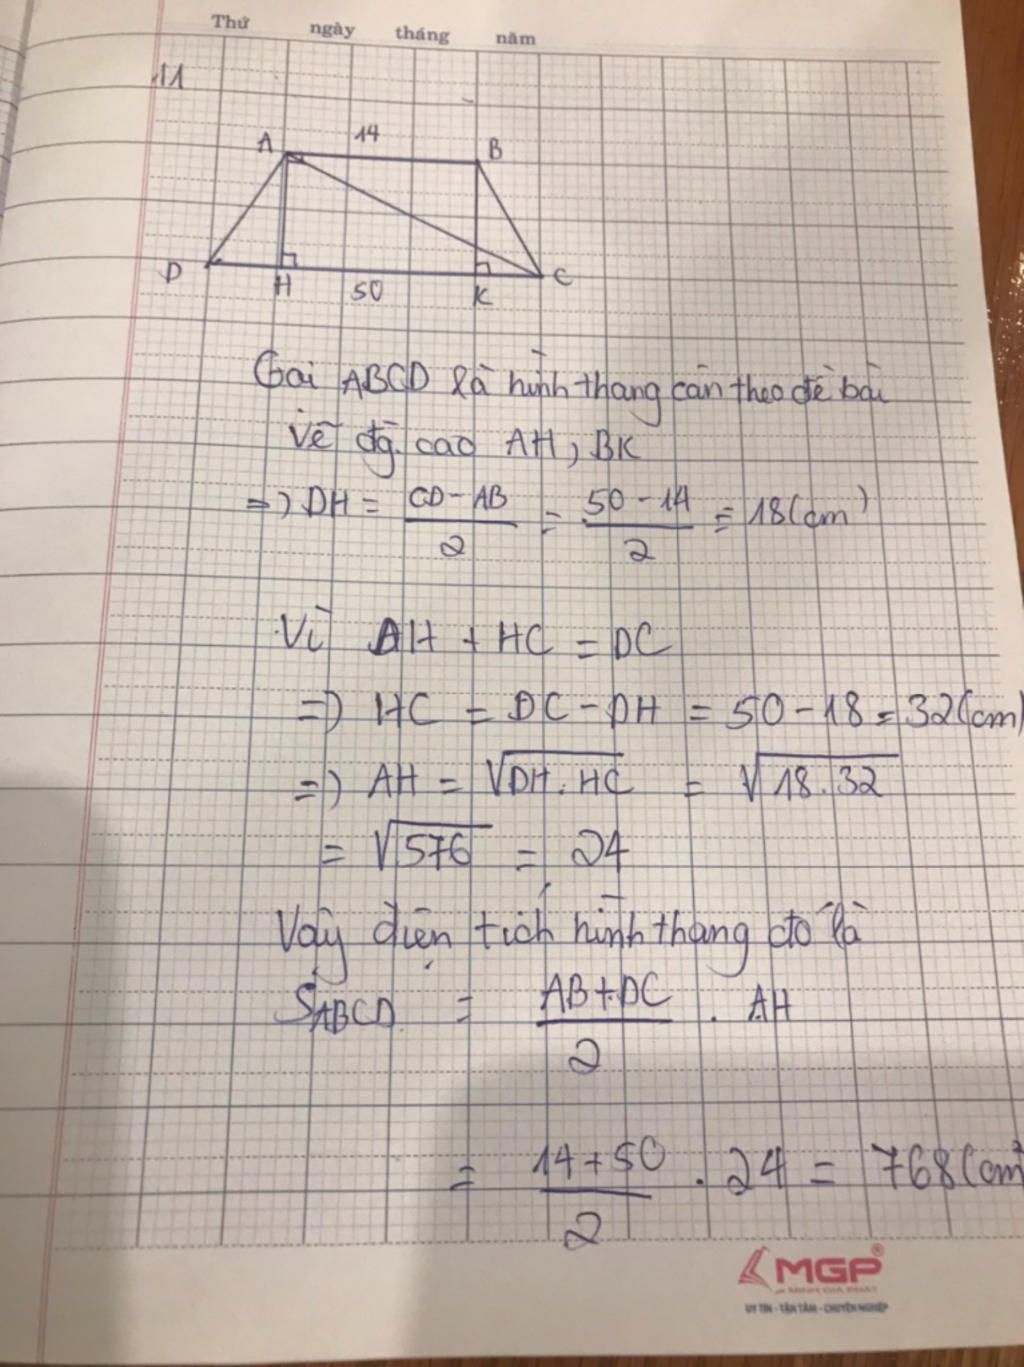 Thứ ngày tháng năm
11
A 14 B
D H 50 K C
Gọi ABCD là hình thang cân theo đề bài
Vẽ đg. cao AH, BK
=> DH = \frac{CD - AB}{2} = \frac{50 - 14}{2} = 18 (cm)
Vì DH + HC = DC
=> HC = DC - DH = 50 - 18 = 32 (cm)
=> AH = √DH . HC = √18 . 32
= √576 = 24
Vậy diện tích hình thang đó là
S_{ABCD} = \frac{AB + DC}{2} . AH
= \frac{14 + 50}{2} . 24 = 768 (cm²
MGP®
MINH GIA PHÁT
UY TÍN - TẬN TÂM - CHUYÊN NGHIỆP